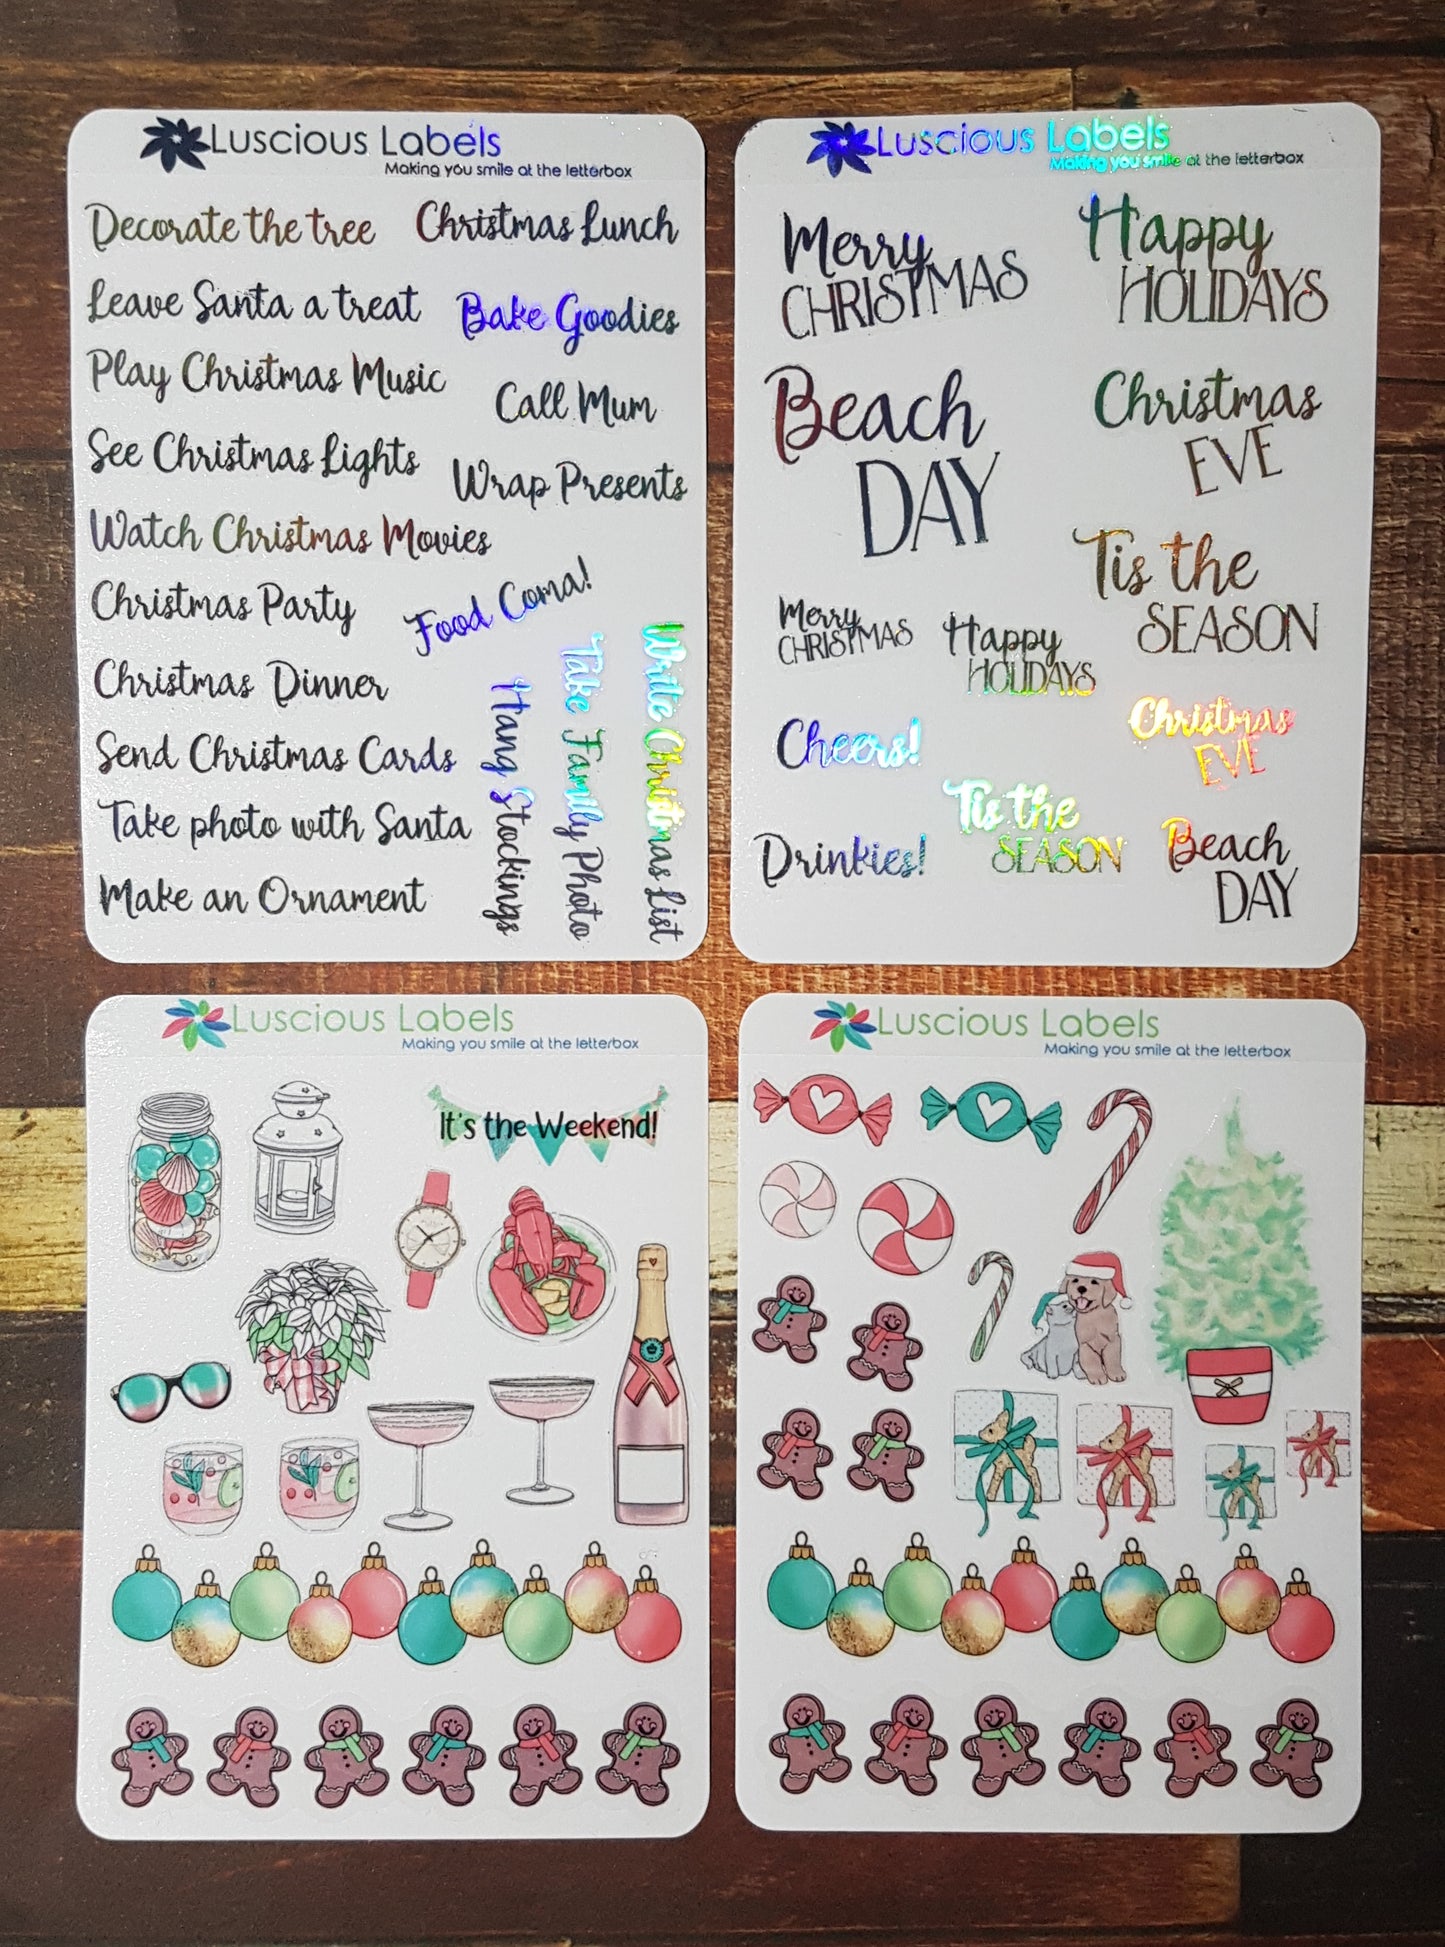 Luscious Labels
Making you smile at the letterbox
Decorate the tree
Christmas Lunch
Leave Santa a treat
Bake Goodies
Play Christmas Music
Call Mum
See Christmas Lights
Wrap Presents
Watch Christmas Movies
Christmas Party
Food Coma!
Christmas Dinner
Send Christmas Cards
Take photo with Santa
Make an Ornament
Hang Stockings
Take Family Photo
Write Christmas List
Luscious Labels
Making you smile at the letterbox
Merry
CHRISTMAS
Happy
HOLIDAYS
Beach
DAY
Christmas
EVE
Tis the
SEASON
Merry
CHRISTMAS
Happy
HOLIDAYS
Cheers!
Christmas
EVE
Drinkies!
Tis the
SEASON
Beach
DAY
Luscious Labels
Making you smile at the letterbox
It's the Weekend!
Luscious Labels
Making you smile at the letterbox